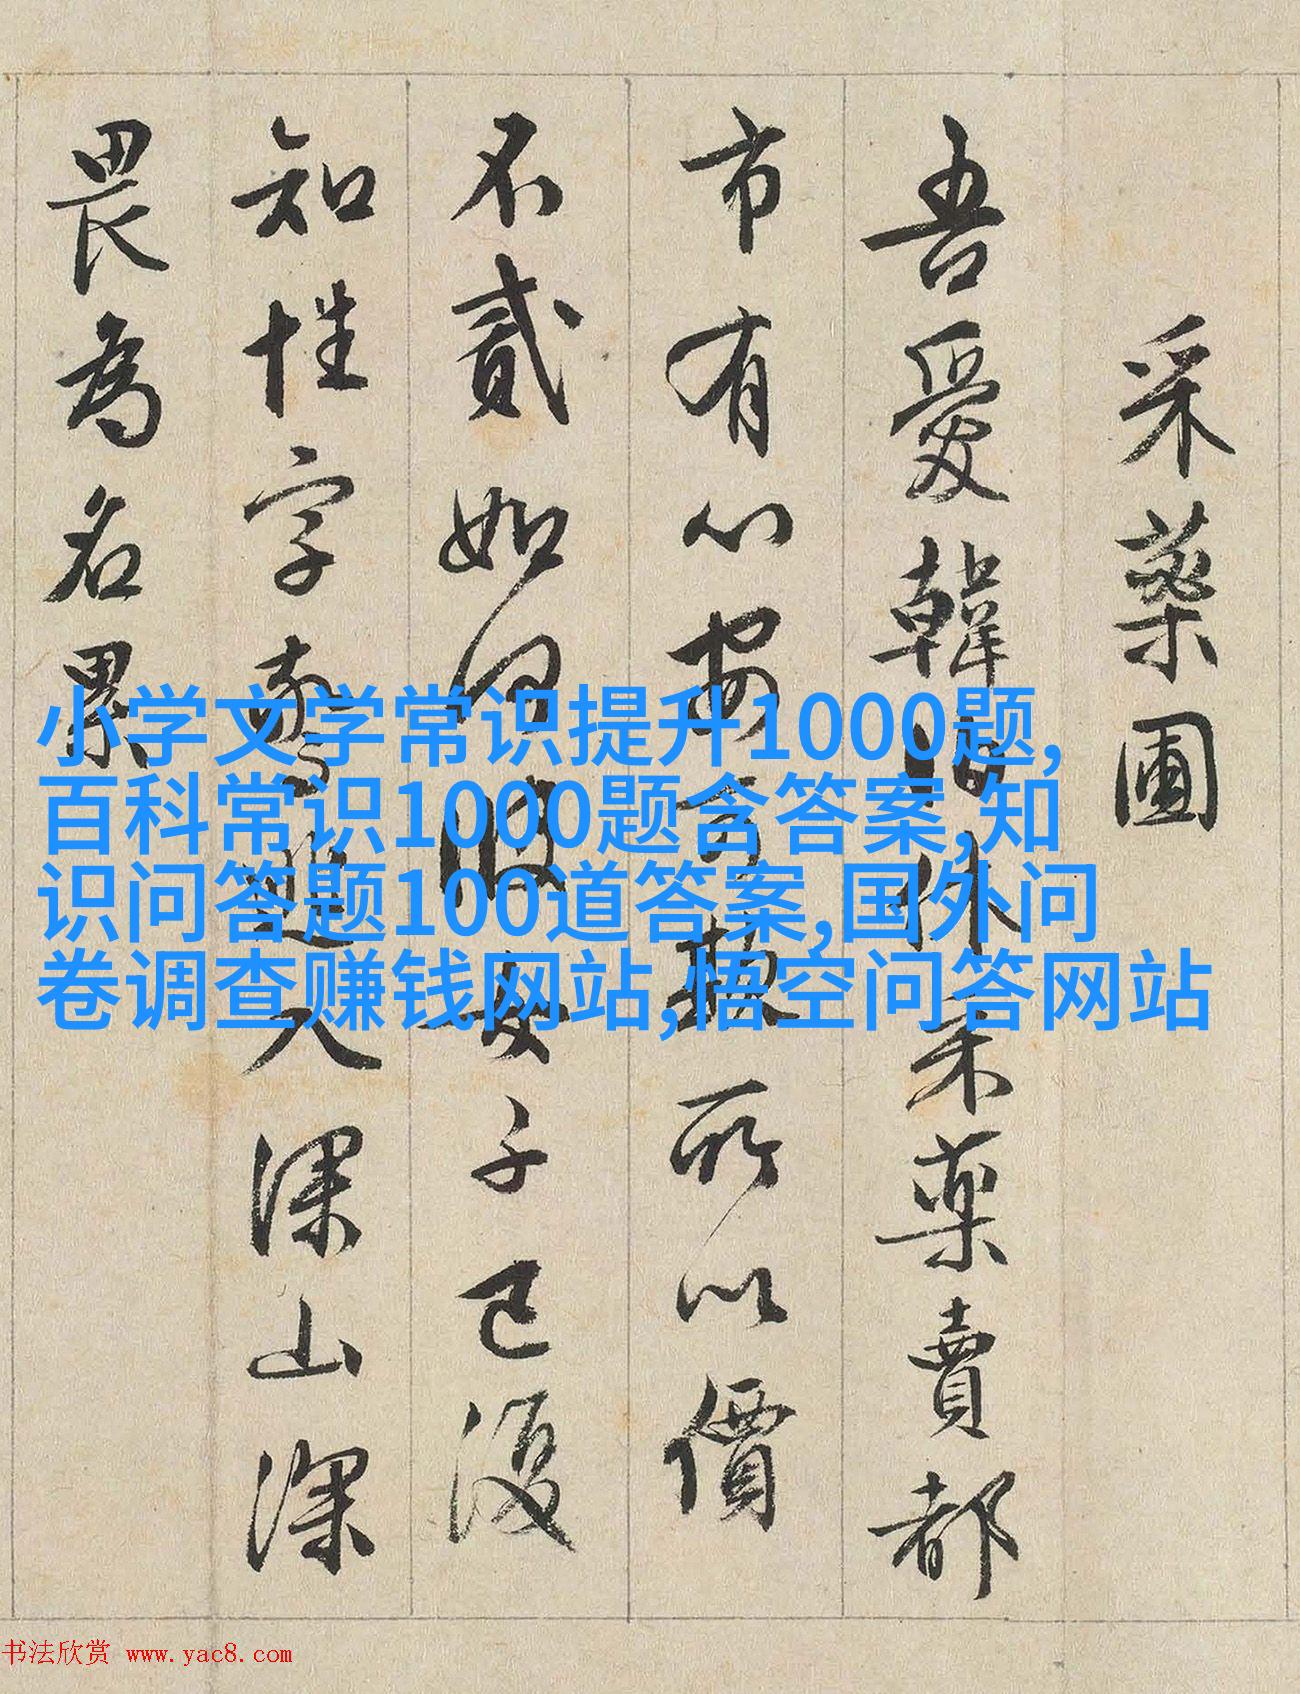 采藥圃
吾愛韓伯休采藥賣都
市有心安可執所以價
不貳如何彼女子已復
知姓字驚逃入深山深
畏為名累
小学文学常识提升1000题,
百科常识1000题含答案,知
识问答题100道答案,国外问
卷调查赚钱网站,悟空问答网站
书法欣赏 www.yac8.com